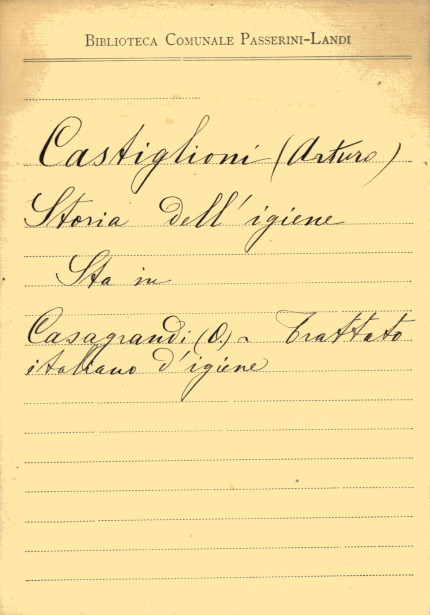 BIBLIOTECA COMUNALE PASSERINI-LANDI
Castiglioni (Arturo)
Storia dell'igiene
Sta in
Casagrandi (O.) - Trattato
italiano d'igiene